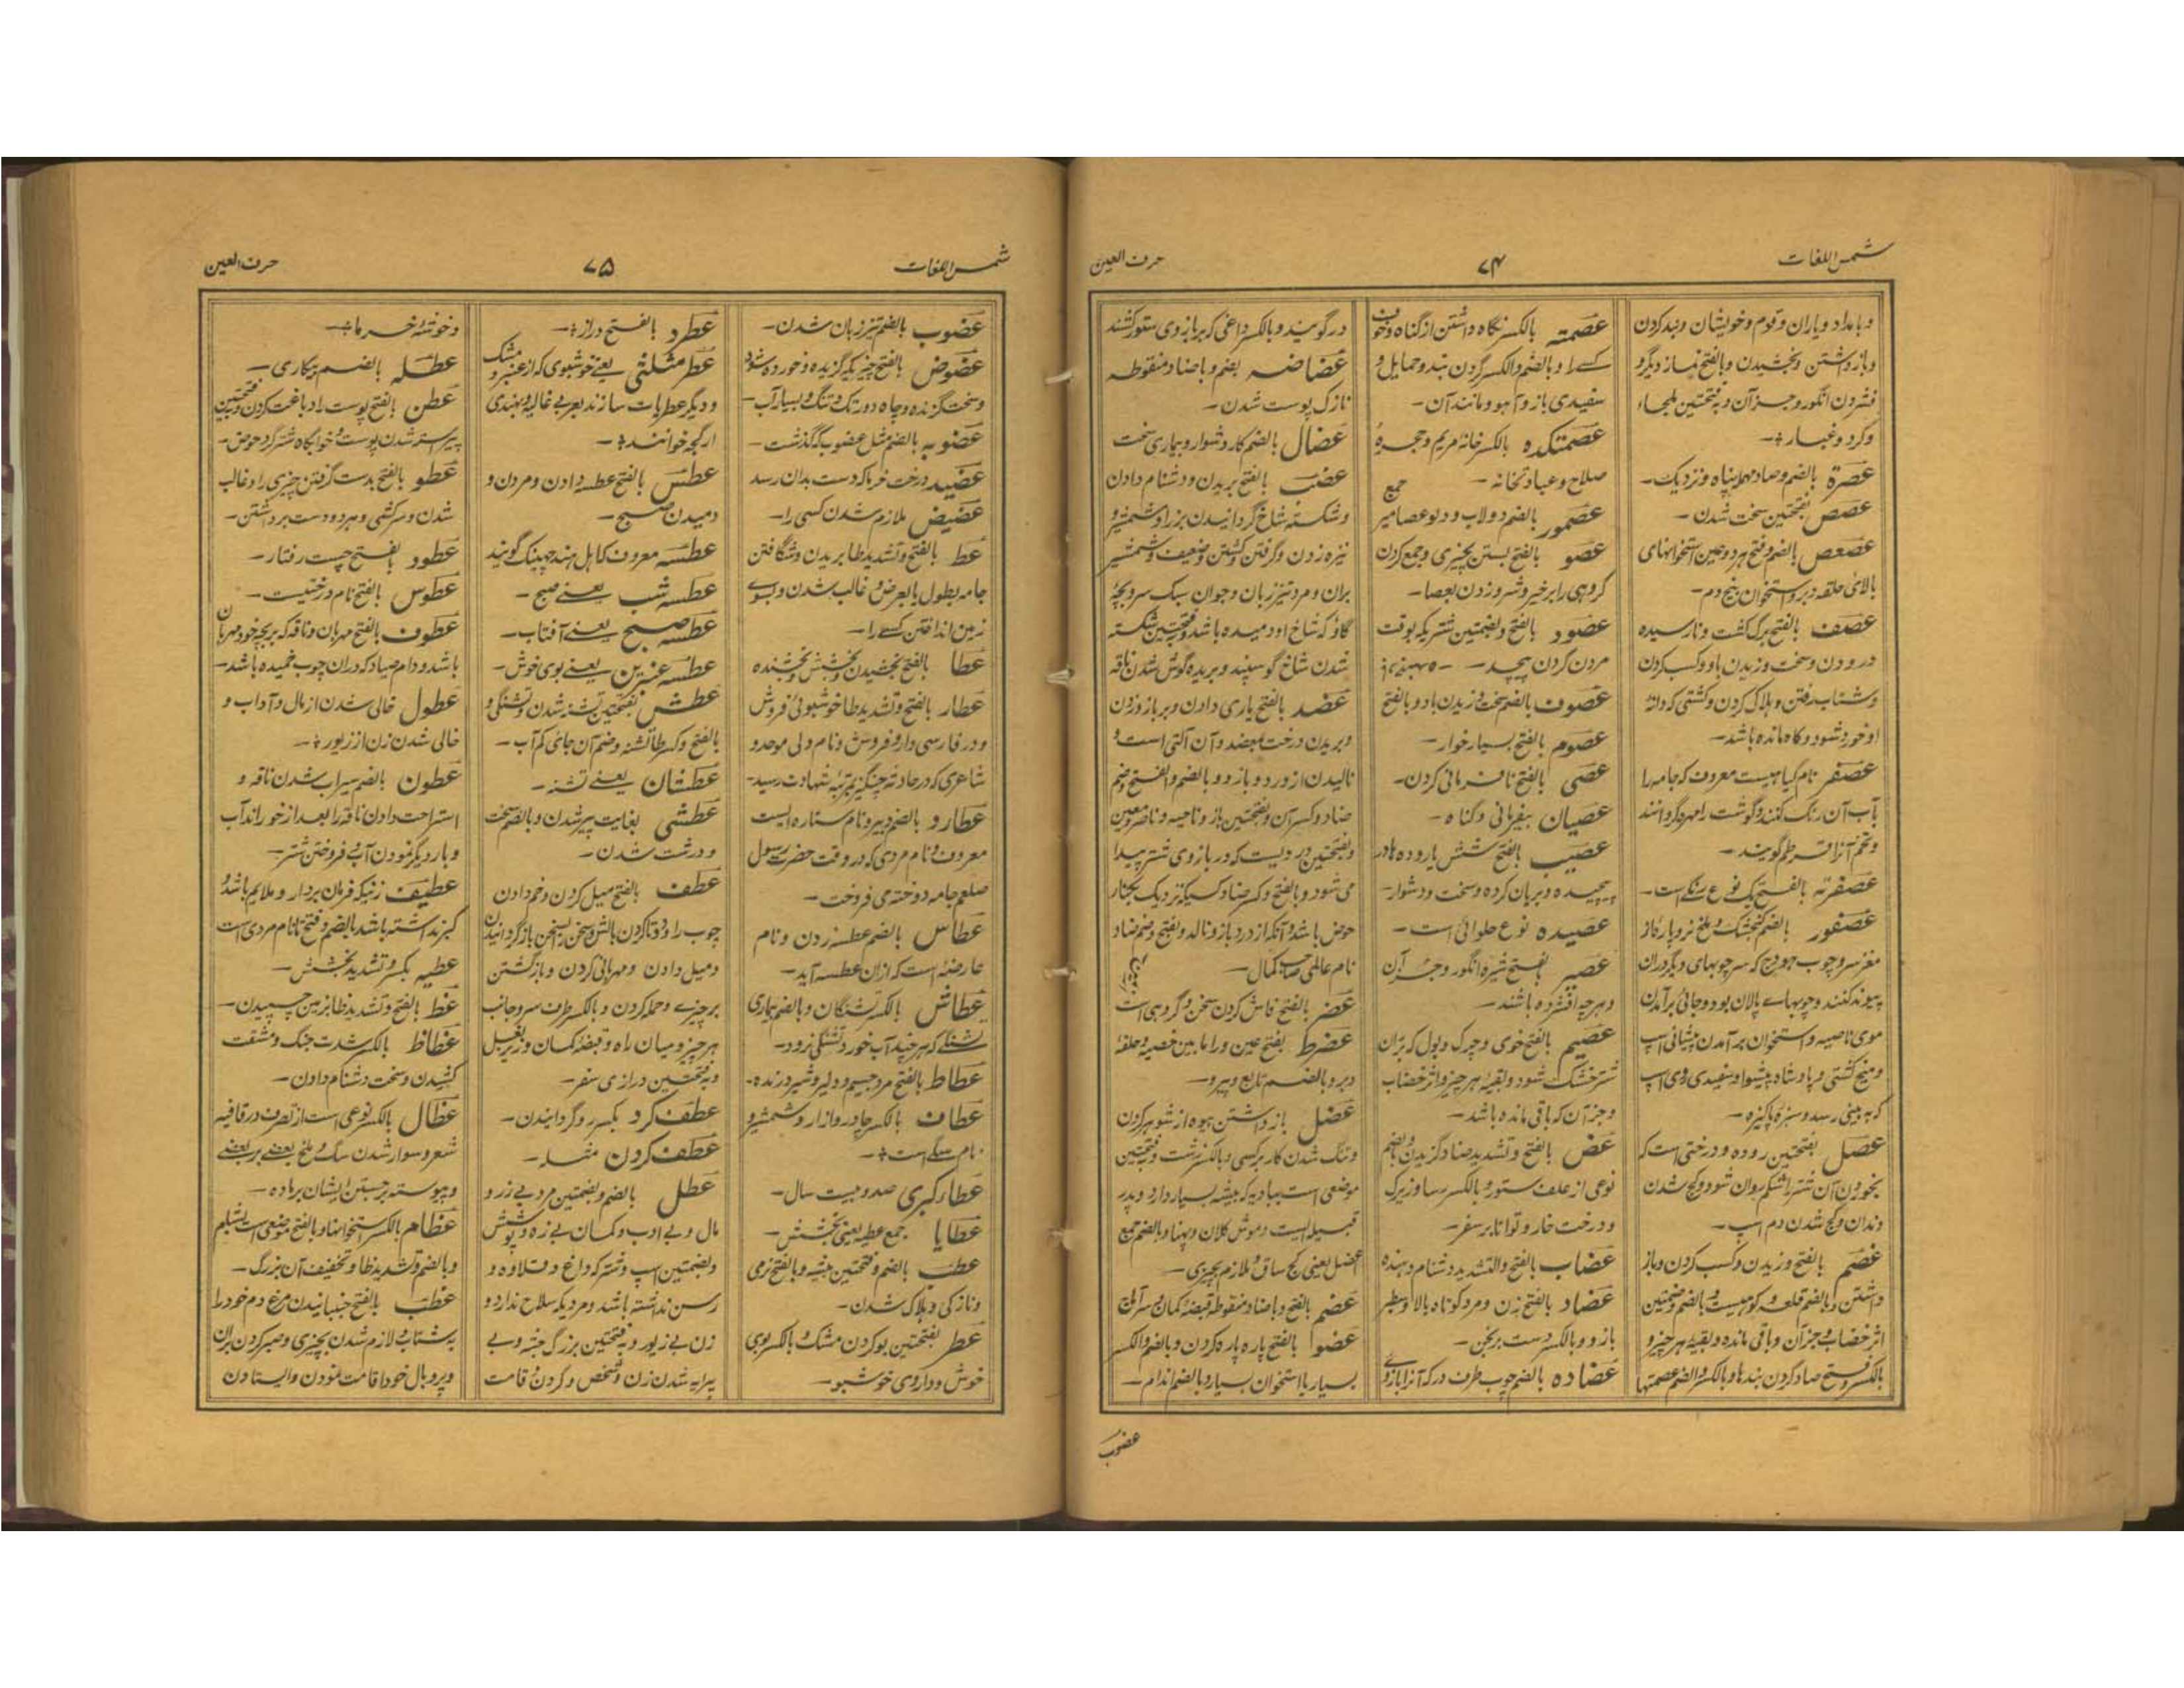 شمس اللغات
۷۴
حرف العین
و بامداد و یاران و قوم و خویشان و بند کردن
و باز داشتن و بخشیدن و بالفتح نماز دیگر و
فشردن انگور و جز آن و بفتحتین ملجاء
و گرد و غبار
عصرة بالضم و صاد مهمله پناه و نزدیک
عصص بفتحتین سخت شدن
عصعص بالضم و فتح هر دو عین استخوانهای
بالای حلقه دبر و استخوان بیخ دم
عصف بالفتح برگ کشت و نارسیده
درودن و سخت وزیدن باد و کسب کردن
و شتاب رفتن و هلاک کردن و کشتی که دانه
او خورد شود و کاه مانده باشد
عصفر نام گیاهیست معروف که جامه را
بآب آن رنگ کنند و گوشت را مهرا گردانند
و تخم آنرا قرطم گویند
عصفرته بالفتح یک نوع رنگ است
عصفور بالضم گنجشک و ملخ نر و پاره از
مغز سر و چوب هودج که سر چوبهای دیگر در ان
پیوند کنند و چوبهای پالان بود و جائی برآمدن
موی ناصیه و استخوان بر آمدن پیشانی اسپ
و میخ کشتی و پادشاه و پیشوا و سفیدی روی اسپ
که به بینی رسد و سبزه پاکیزه
عصل بفتحتین روده و درختی است که
بخوردن آن شتر را شکم روان شود و کج شدن
دندان و کج شدن دم اسپ
عصم بالفتح ورزیدن و کسب کردن و باز
داشتن و بالضم قلعه و کوهیست و بالضم و ضمتین
اثر خضاب و جز آن و باقی مانده و بقیه هر چیز و
بالکسر و فتح صاد گردن بندها و بالکسر و الضم عصمتها
عصمته بالکسر نگاه داشتن از گناه و خون
کسے را و بالضم و الکسر گردن بند و حمایل و
سفیدی باز و آهو و مانند آن
عصمتکده بالکسر خانهٔ مریم و حجرهٔ
صلاح و عبادتخانه
عصمور بالضم دولاب و دلو عصامیر جمع
عصو بالفتح بستن بچیزی و جمع کردن
گروهی را بر خیر و شر و زدن بعصا
عصود بالفتح و بضمتین شتریکه بوقت
مردن گردن پیچد
عصوف بالضم سخت وزیدن باد و بالفتح
عصوم بالفتح بسیار خوار
عصی بالفتح نافرمانی کردن
عصیان بیفرمانی و گناه
عصیب بالفتح شش یا روده ها در
پیچیده و بریان کرده و سخت و دشوار
عصیده نوع حلوائی است
عصیر بالفتح شیره انگور و جز آن
و هر چه افشرده باشند
عصیم بالفتح خوی و چرک و بول که بران
شتر خشک شود و بقیه هر چیز و اثر خضاب
و جز آن که باقی مانده باشد
عض بالفتح و تشدید ضاد گزیدن و بالضم
نوعی از علف ستور و بالکسر رسا و زیرک
و درخت خار و توانا بر سفر
عضاب بالفتح و التشدید دشنام دهنده
عضاد بالفتح زن و مرد کوتاه بالا و سطبر
بازو و بالکسر دست برنجن
عضاده بالضم چوب طرف در که آنرا بازوی
در گویند و بالکسر داغی که بر بازوی ستور کشند
عضاضه بضم و با ضاد منقوطه
نازک پوست شدن
عضال بالضم کار دشوار و بیماری سخت
عضب بالفتح بریدن و دشنام دادن
و شکسته شاخ گردانیدن بز را و شمشیر و
نیزه زدن و گرفتن و کشتن و ضعیف و شمشیر
بران و مرد تیز زبان و جوان سبک سر و بچهٔ
گاؤ که شاخ او دمیده باشد و بفتحتین شکسته
شدن شاخ گوسپند و بریده گوش شدن ناقه
عضد بالفتح یاری دادن و بر بازو زدن
و بریدن درخت بمعضد و آن آلتی است و
نالیدن از درد بازو و بالضم و الفتح و ضم
ضاد و کسر آن و بفتحتین بازو ناحیه و ناصر و معین
و بفتحتین دردیست که در بازوی شتر پیدا
می شود و بالفتح و کسر ضاد کسیکه نزدیک بکنار
حوض باشد و آنکه از درد بازو نالد و بفتح و ضم ضاد
نام عالمی صاحب کمال
عضر بالفتح فاش کردن سخن و گروهی است
عضرط بفتح عین و را ما بین خصیه و حلقهٔ
دبر و بالضم تابع و پیرو
عضل باز داشتن بیوه از شوهر کردن
و تنگ شدن کار بر کسی و بالکسر زشت و بفتحتین
موضعی است ببادیه که بیشه بسیار دارد و پدر
قبیله ایست و موش کلان و پهنا و بالضم جمع
اعضل یعنی کج ساق و ملازم بچیزی
عضم بالفتح و با ضاد منقوطه قبضهٔ کمان و سر آن
عضوا بالفتح پاره پاره کردن و بالضم و الکسر
بسیار یا استخوان بسیار و بالضم اندام
عضوب
شمس اللغات
۷۵
حرف العین
عضوب بالضم تیز زبان شدن
عضوض بالفتح چیزیکه گزیده و خورده شود
و سخت گزنده و چاه دور تک و تنگ و بسیار آب
عضوبه بالضم مثل عضوب که گذشت
عضید درخت خرما که دست بدان رسد
عضیض ملازم شدن کسی را
عط بالفتح و تشدید طا بریدن و شگافتن
جامه بطول یا بعرض و غالب شدن و بسوے
زمین انداختن کسے را
عطا بالفتح بخشیدن و بخشش و بخشنده
عطار بالفتح و تشدید طا خوشبوئی فروش
و در فارسی دارو فروش و نام ولی موحد و
شاعری که در حادثه چنگیز بمرتبه شهادت رسید
عطارد بالضم دبیر و نام ستاره ایست
معروف و نام مردی که در وقت حضرت رسول
صلعم جامه دوخته می فروخت
عطاس بالضم عطسه زدن و نام
عارضه است که ازان عطسه آید
عطاش بالکسر تشنگان و بالضم بیماری
تشنگی که هر چند آب خورد تشنگی نرود
عطاط بالفتح مرد جسیم و دلیر و شیر درنده
عطاف بالکسر چادر و ازار و شمشیر و
نام سگے است
عطاء کبری صد و بیست سال
عطایا جمع عطیه یعنی بخشش
عطب بالضم و بفتحتین پنبه و بالفتح نرمی
و نازکی و هلاک شدن
عطر بفتحتین بو کردن مشک و بالکسر بوی
خوش و داروی خوشبو
عطرد بالفتح دراز
عطر مثلثی یعنے خوشبوی که از عنبر و مشک
و دیگر عطریات سازند بعربی غالیه و بهندی
ارگجه خوانند
عطس بالفتح عطسه دادن و مردن و
دمیدن صبح
عطسه معروف که اهل هند چهینک گویند
عطسه شب یعنے صبح
عطسه صبح یعنے آفتاب
عطسه عنبرین یعنے بوی خوش
عطش بفتحتین تشنه شدن و تشنگی و
بالفتح و کسر طا تشنه و ضم آن جای کم آب
عطشان یعنے تشنه
عطشی بغایت پیر شدن و بالضم سخت
و درشت شدن
عطف بالفتح میل کردن و خم دادن
چوب را و دو تا کردن بالش و سخن بسخن باز گردانیدن
و میل دادن و مهربانی کردن و باز گشتن
بر چیزے و حمله کردن و بالکسر طرف سر و جانب
هر چیز و میان راه و قبضهٔ کمان و زیر بغل
و بفتحتین درازی سفر
عطف کرد بکسر رو گردانیدن
عطف کردن مثله
عطل بالضم و بضمتین مرد بے زر و
مال و بے ادب و کمان بے زه و پوشش
و بضمتین اسپ و شتر که داغ و قلاوه و
رسن نداشته باشد و مردیکه سلاح ندارد و
زن بے زیور و بفتحتین بزرگ جثه و بے
پیرایه شدن زن و شخص و گردن و قامت
و خوشهٔ خرما
عطله بالضم بیکاری
عطن بالفتح پوست را دباغت کردن و بفتحتین
پیراسته شدن پوست و خوابگاه شتر گرد حوض
عطو بالفتح بدست گرفتن چیزی را و غالب
شدن و سرکشی و هر دو دست برداشتن
عطود بفتح چست رفتار
عطوس بالفتح نام درختیست
عطوف بالفتح مهربان و ناقه که بر بچه خود مهربان
باشد و دام صیاد که دران چوب خمیده باشد
عطول خالی شدن از مال و آداب و
خالی شدن زن از زیور
عطون بالضم سیراب شدن ناقه و
استراحت دادن ناقه را بعد از خوراند آب
و بار دیگر نمودن آب و فروختن شتر
عطیف زنیکه فرمان بردار و ملایم باشد و
کبر نداشته باشد بالضم و فتح تا نام مردی است
عطیه بکسر و تشدید بخشش
عظ بالفتح و تشدید ظا بزمین چسپیدن
عظاظ بالکسر شدت جنگ و مشقت
کشیدن و سخت دشنام دادن
عظال بالکسر نوعی است از تصرف در قافیه
شعر و سوار شدن سگ و ملخ بعضے بر بعضے
و پیوسته بر جستن ایشان بر ماده
عظام بالکسر استخوانها و بالفتح موضعی است بشام
و بالضم و تشدید ظا و تخفیف آن بزرگ
عظب بالفتح جنبانیدن مرغ دم خود را
بشتاب و لازم شدن بچیزی و صبر کردن بران
و پر و بال خود اقامت نمودن و ایستادن